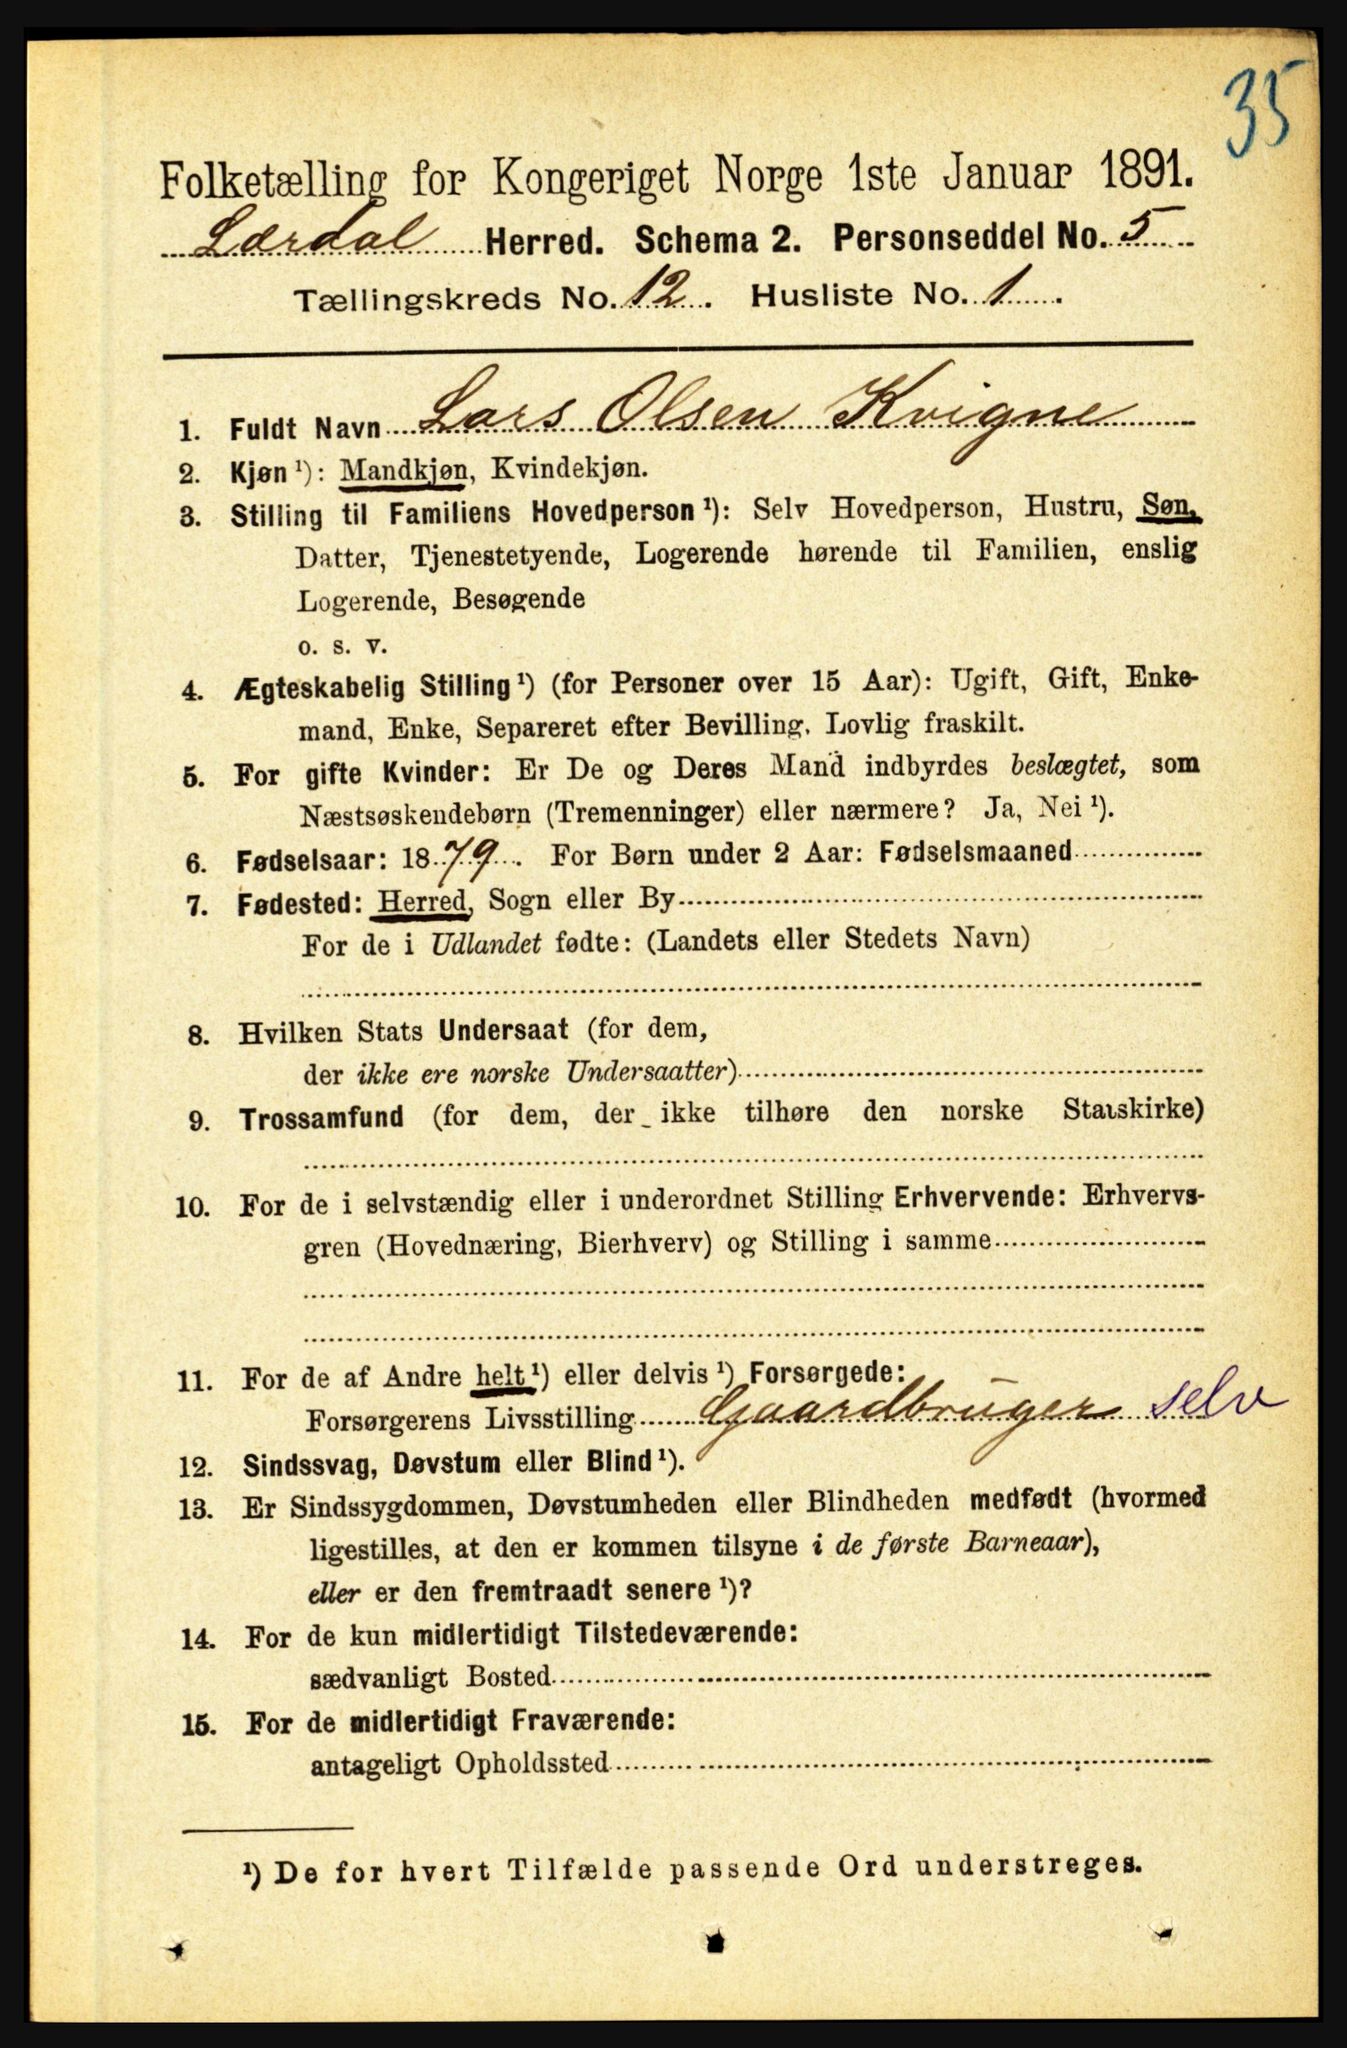 35
Folketælling for Kongeriget Norge 1ste Januar 1891.
Lærdal Herred. Schema 2. Personseddel No. 5
Tællingskreds No. 12. Husliste No. 1.
1. Fuldt Navn Lars Olsen Kvigne
2. Kjøn ¹): Mandkjøn, Kvindekjøn.
3. Stilling til Familiens Hovedperson ¹): Selv Hovedperson, Hustru, Søn,
Datter, Tjenestetyende, Logerende hørende til Familien, enslig
Logerende, Besøgende
o. s. v.
4. Ægteskabelig Stilling ¹) (for Personer over 15 Aar): Ugift, Gift, Enke-
mand, Enke, Separeret efter Bevilling. Lovlig fraskilt.
5. For gifte Kvinder: Er De og Deres Mand indbyrdes beslægtet, som
Næstsøskendebørn (Tremenninger) eller nærmere? Ja, Nei ¹).
6. Fødselsaar: 1879. For Børn under 2 Aar: Fødselsmaaned
7. Fødested: Herred, Sogn eller By
For de i Udlandet fødte: (Landets eller Stedets Navn)
8. Hvilken Stats Undersaat (for dem,
der ikke ere norske Undersaatter)
9. Trossamfund (for dem, der ikke tilhøre den norske Statskirke)
10. For de i selvstændig eller i underordnet Stilling Erhvervende: Erhvervs-
gren (Hovednæring, Bierhverv) og Stilling i samme
11. For de af Andre helt ¹) eller delvis ¹) Forsørgede:
Forsørgerens Livsstilling Gaardbruger selv
12. Sindssvag, Døvstum eller Blind ¹).
13. Er Sindssygdommen, Døvstumheden eller Blindheden medfødt (hvormed
ligestilles, at den er kommen tilsyne i de første Barneaar),
eller er den fremtraadt senere ¹)?
14. For de kun midlertidigt Tilstedeværende:
sædvanligt Bosted
15. For de midlertidigt Fraværende:
antageligt Opholdssted
¹) De for hvert Tilfælde passende Ord understreges.